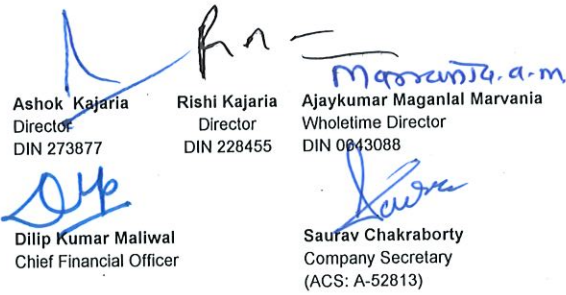 Marvania.a.m
Ashok Kajaria
Director
DIN 273877
Rishi Kajaria
Director
DIN 228455
Ajaykumar Maganlal Marvania
Wholetime Director
DIN 0043088
Dilip Kumar Maliwal
Chief Financial Officer
Saurav Chakraborty
Company Secretary
(ACS: A-52813)